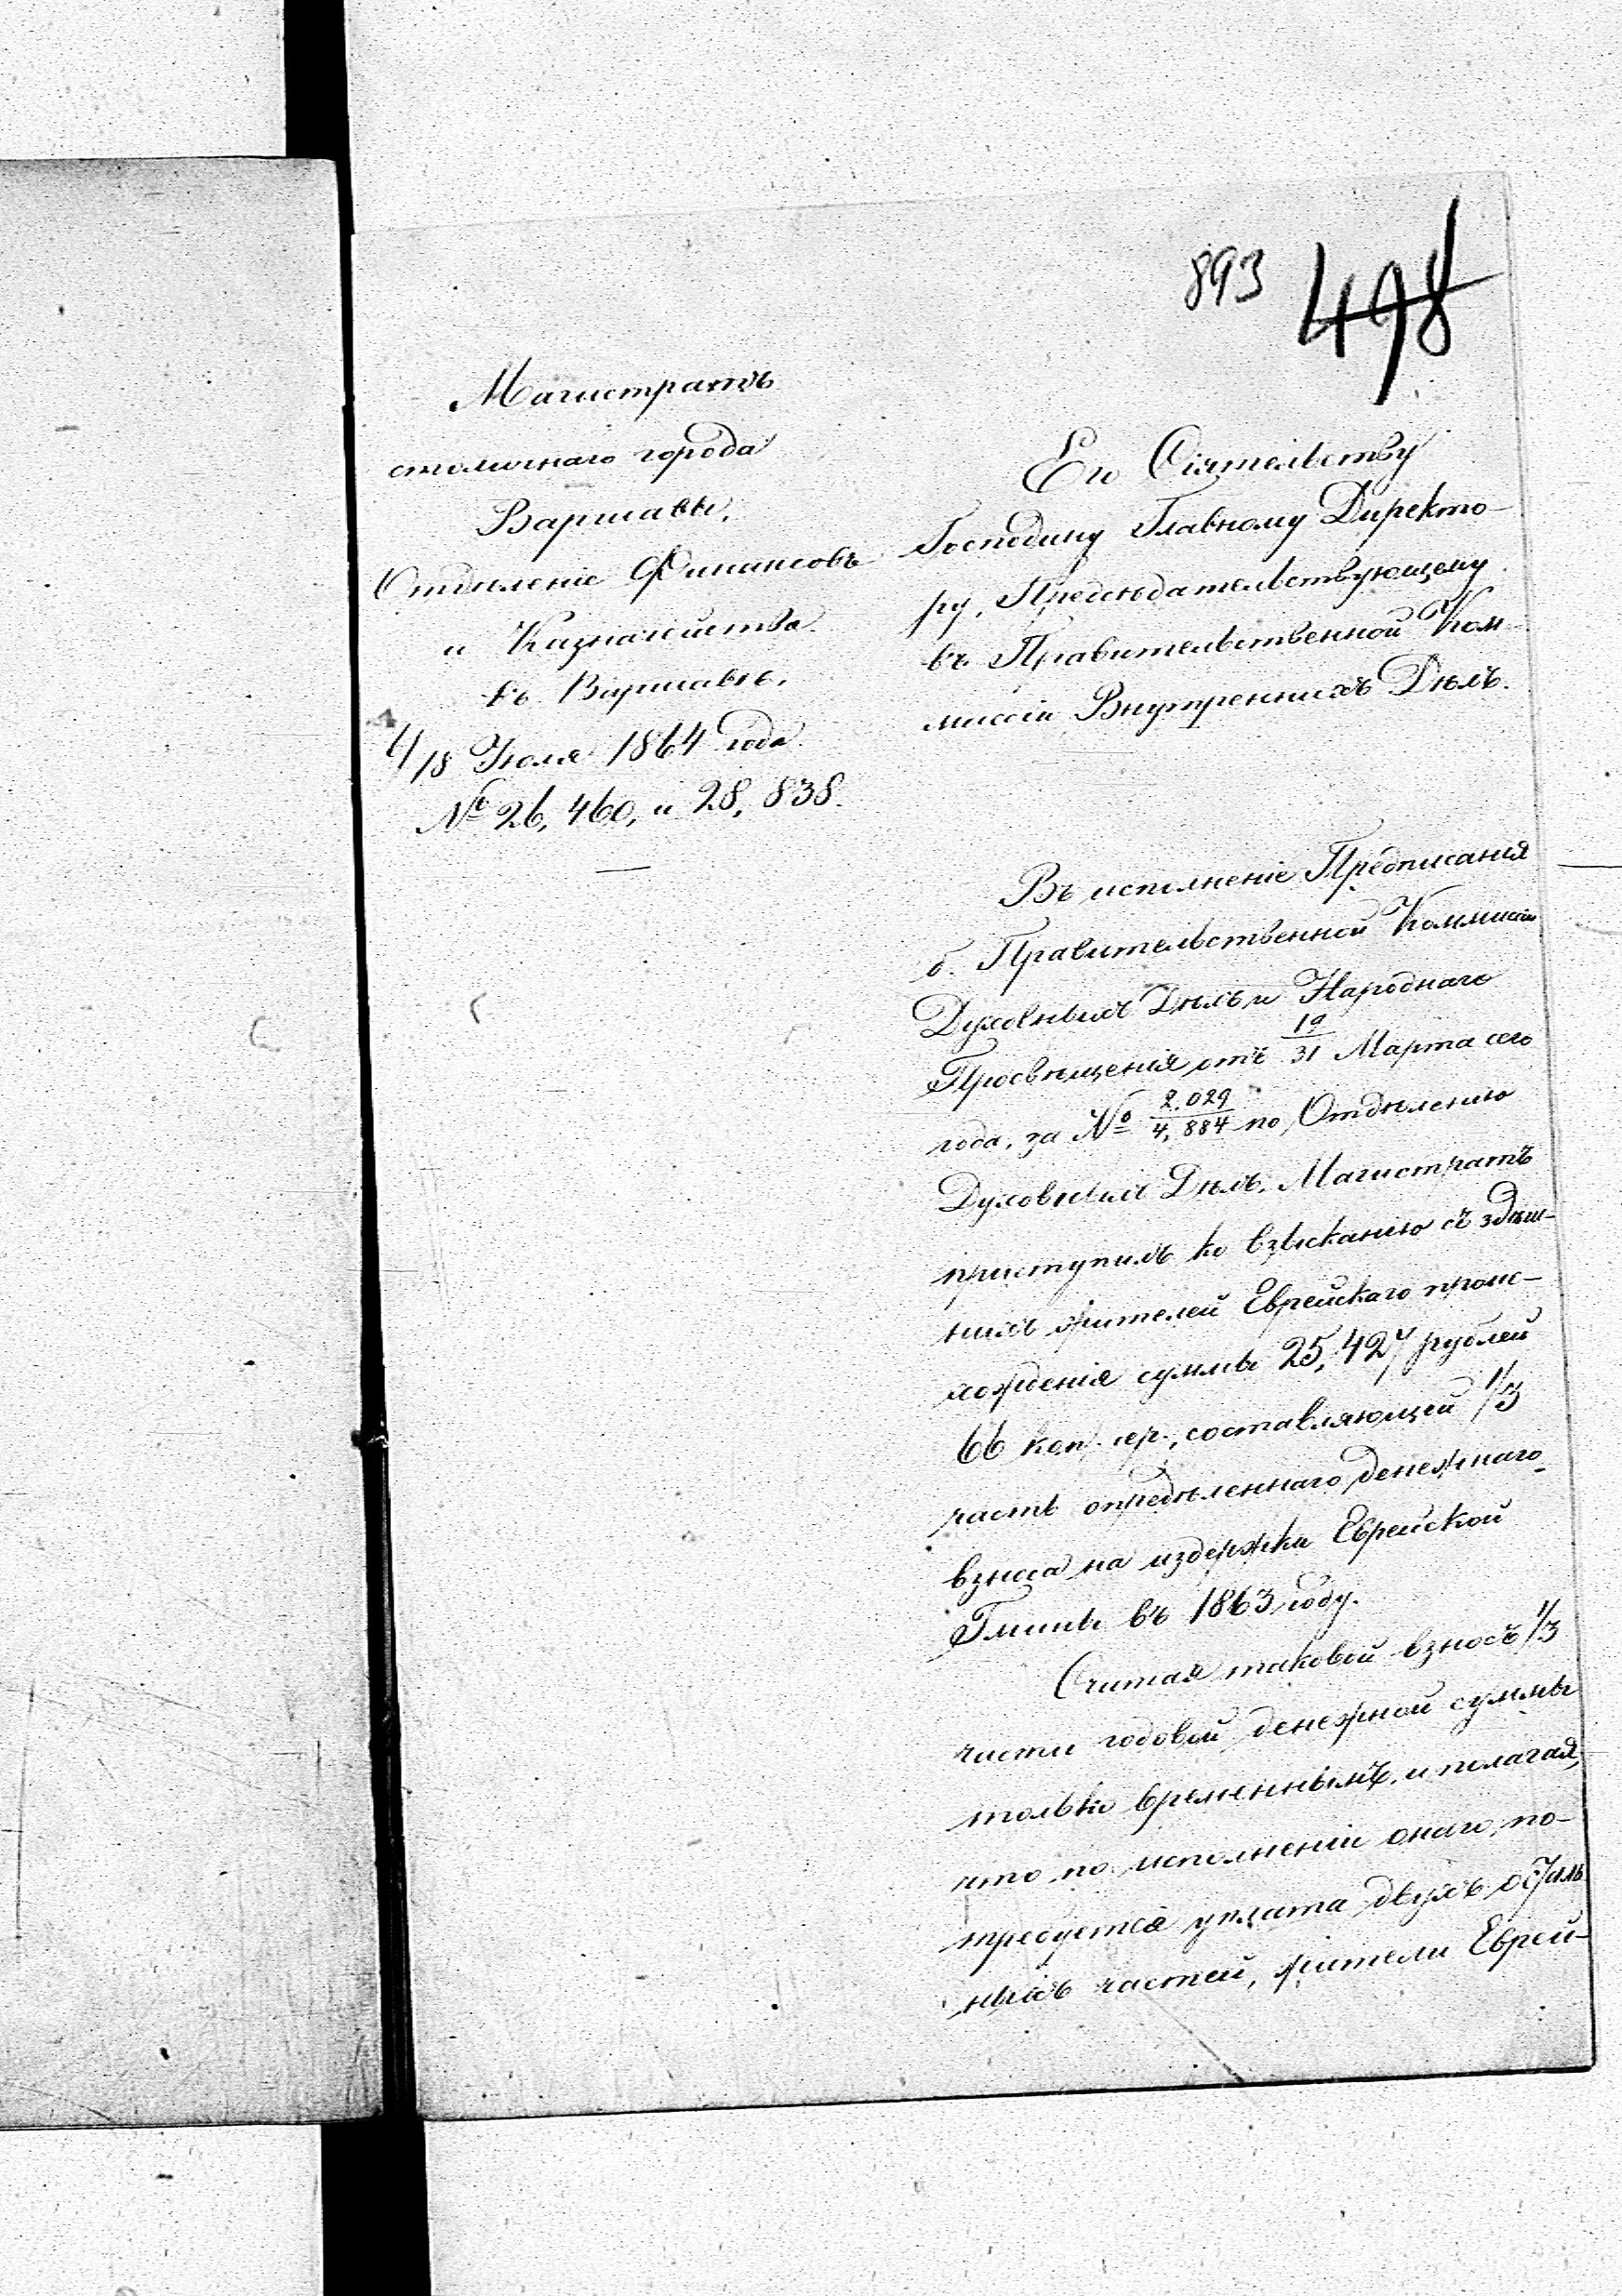 893 498
Магистратъ
столичнаго города
Варшавы.
Отдѣленіе Финансовъ
и Казначейства.
въ Варшавѣ.
4/18 Іюля 1864 года.
№ 26,460, и 28,838.
Его Сіятельству
Господину Главному Директо-
ру, Предсѣдательствующему
въ Правительственной Ком-
миссіи Внутреннихъ Дѣлъ.
Въ исполненіе Предписанія
б. Правительственной Коммисіи
Духовныхъ Дѣлъ и Народнаго
Просвѣщенія отъ 19/31 Марта сего
года, за № 2.029/4,884 по Отдѣленію
Духовныхъ Дѣлъ, Магистратъ
приступилъ ко взысканію съ здѣш-
нихъ жителей Еврейскаго проис-
хожденія суммы 25,427 рублей
66 коп. сер., составляющей 1/3
часть опредѣленнаго денежнаго
взноса на издержки Еврейской
Гмины въ 1863 году.
Считая таковой взносъ 1/3
части годовой денежной суммы
только временнымъ, и полагая,
что по исполненіи онаго, по-
требуется уплата двухъ осталь
ныхъ частей, жители Еврей-